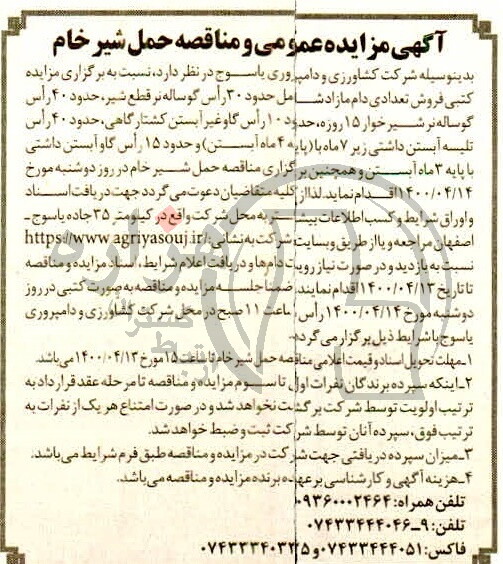 آگهی مزایده عمومی و مناقصه حمل شیر خام
بدینوسیله شرکت کشاورزی و دامپروری یاسوج در نظر دارد، نسبت به برگزاری مزایده
کتبی فروش تعدادی دام مازاد شامل حدود ۳۰ رأس گوساله نر قطع شیر، حدود ۴۰ رأس
گوساله نر شیر خوار ۱۵ روزه، حدود ۱۰ رأس گاو غیر آبستن کشتار گاهی، حدود ۴۰ رأس
تلیسه آبستن داشتی زیر ۷ ماه با (پایه ۴ ماه آبستن) و حدود ۱۵ رأس گاو آبستن داشتی
با پایه ۳ ماه آبستن و همچنین برگزاری مناقصه حمل شیر خام در روز دوشنبه مورخ
۱۴۰۰/۰۴/۱۴ اقدام نماید. لذا از کلیه متقاضیان دعوت می گردد جهت دریافت اسناد
و اوراق شرایط و کسب اطلاعات بیشتر به محل شرکت واقع در کیلومتر ۳۵ جاده یاسوج -
اصفهان مراجعه و یا از طریق وبسایت شرکت به نشانی: https://www.agriyasouj.ir/
نسبت به بازدید و در صورت نیاز رویت دام ها و دریافت اعلام شرایط، اسناد مزایده و مناقصه
تا تاریخ ۱۴۰۰/۰۴/۱۳ اقدام نمایند. ضمنا جلسه مزایده و مناقصه به صورت کتبی در روز
دوشنبه مورخ ۱۴۰۰/۰۴/۱۴ رأس ساعت ۱۱ صبح در محل شرکت کشاورزی و دامپروری
یاسوج با شرایط ذیل برگزار می گردد.
۱- مهلت تحویل اسناد و قیمت اعلامی مناقصه حمل شیر خام تا ساعت ۱۵ مورخ ۱۴۰۰/۰۴/۱۳ می باشد.
۲- اینکه سپرده برندگان نفرات اول تا سوم مزایده و مناقصه تا مرحله عقد قرارداد به
ترتیب اولویت توسط شرکت برگشت نخواهد شد و در صورت امتناع هر یک از نفرات به
ترتیب فوق، سپرده آنان توسط شرکت ثبت و ضبط خواهد شد.
۳- میزان سپرده دریافتی جهت شرکت در مزایده و مناقصه طبق فرم شرایط می باشد.
۴- هزینه آگهی و کارشناسی بر عهده برنده مزایده و مناقصه می باشد.
تلفن همراه: ۰۹۳۶۰۰۰۲۴۶۴
تلفن: ۹-۰۷۴۳۳۴۴۴۰۴۶
فاکس: ۰۷۴۳۳۴۴۴۰۵۱ و ۰۷۴۳۳۳۴۰۳۳۵